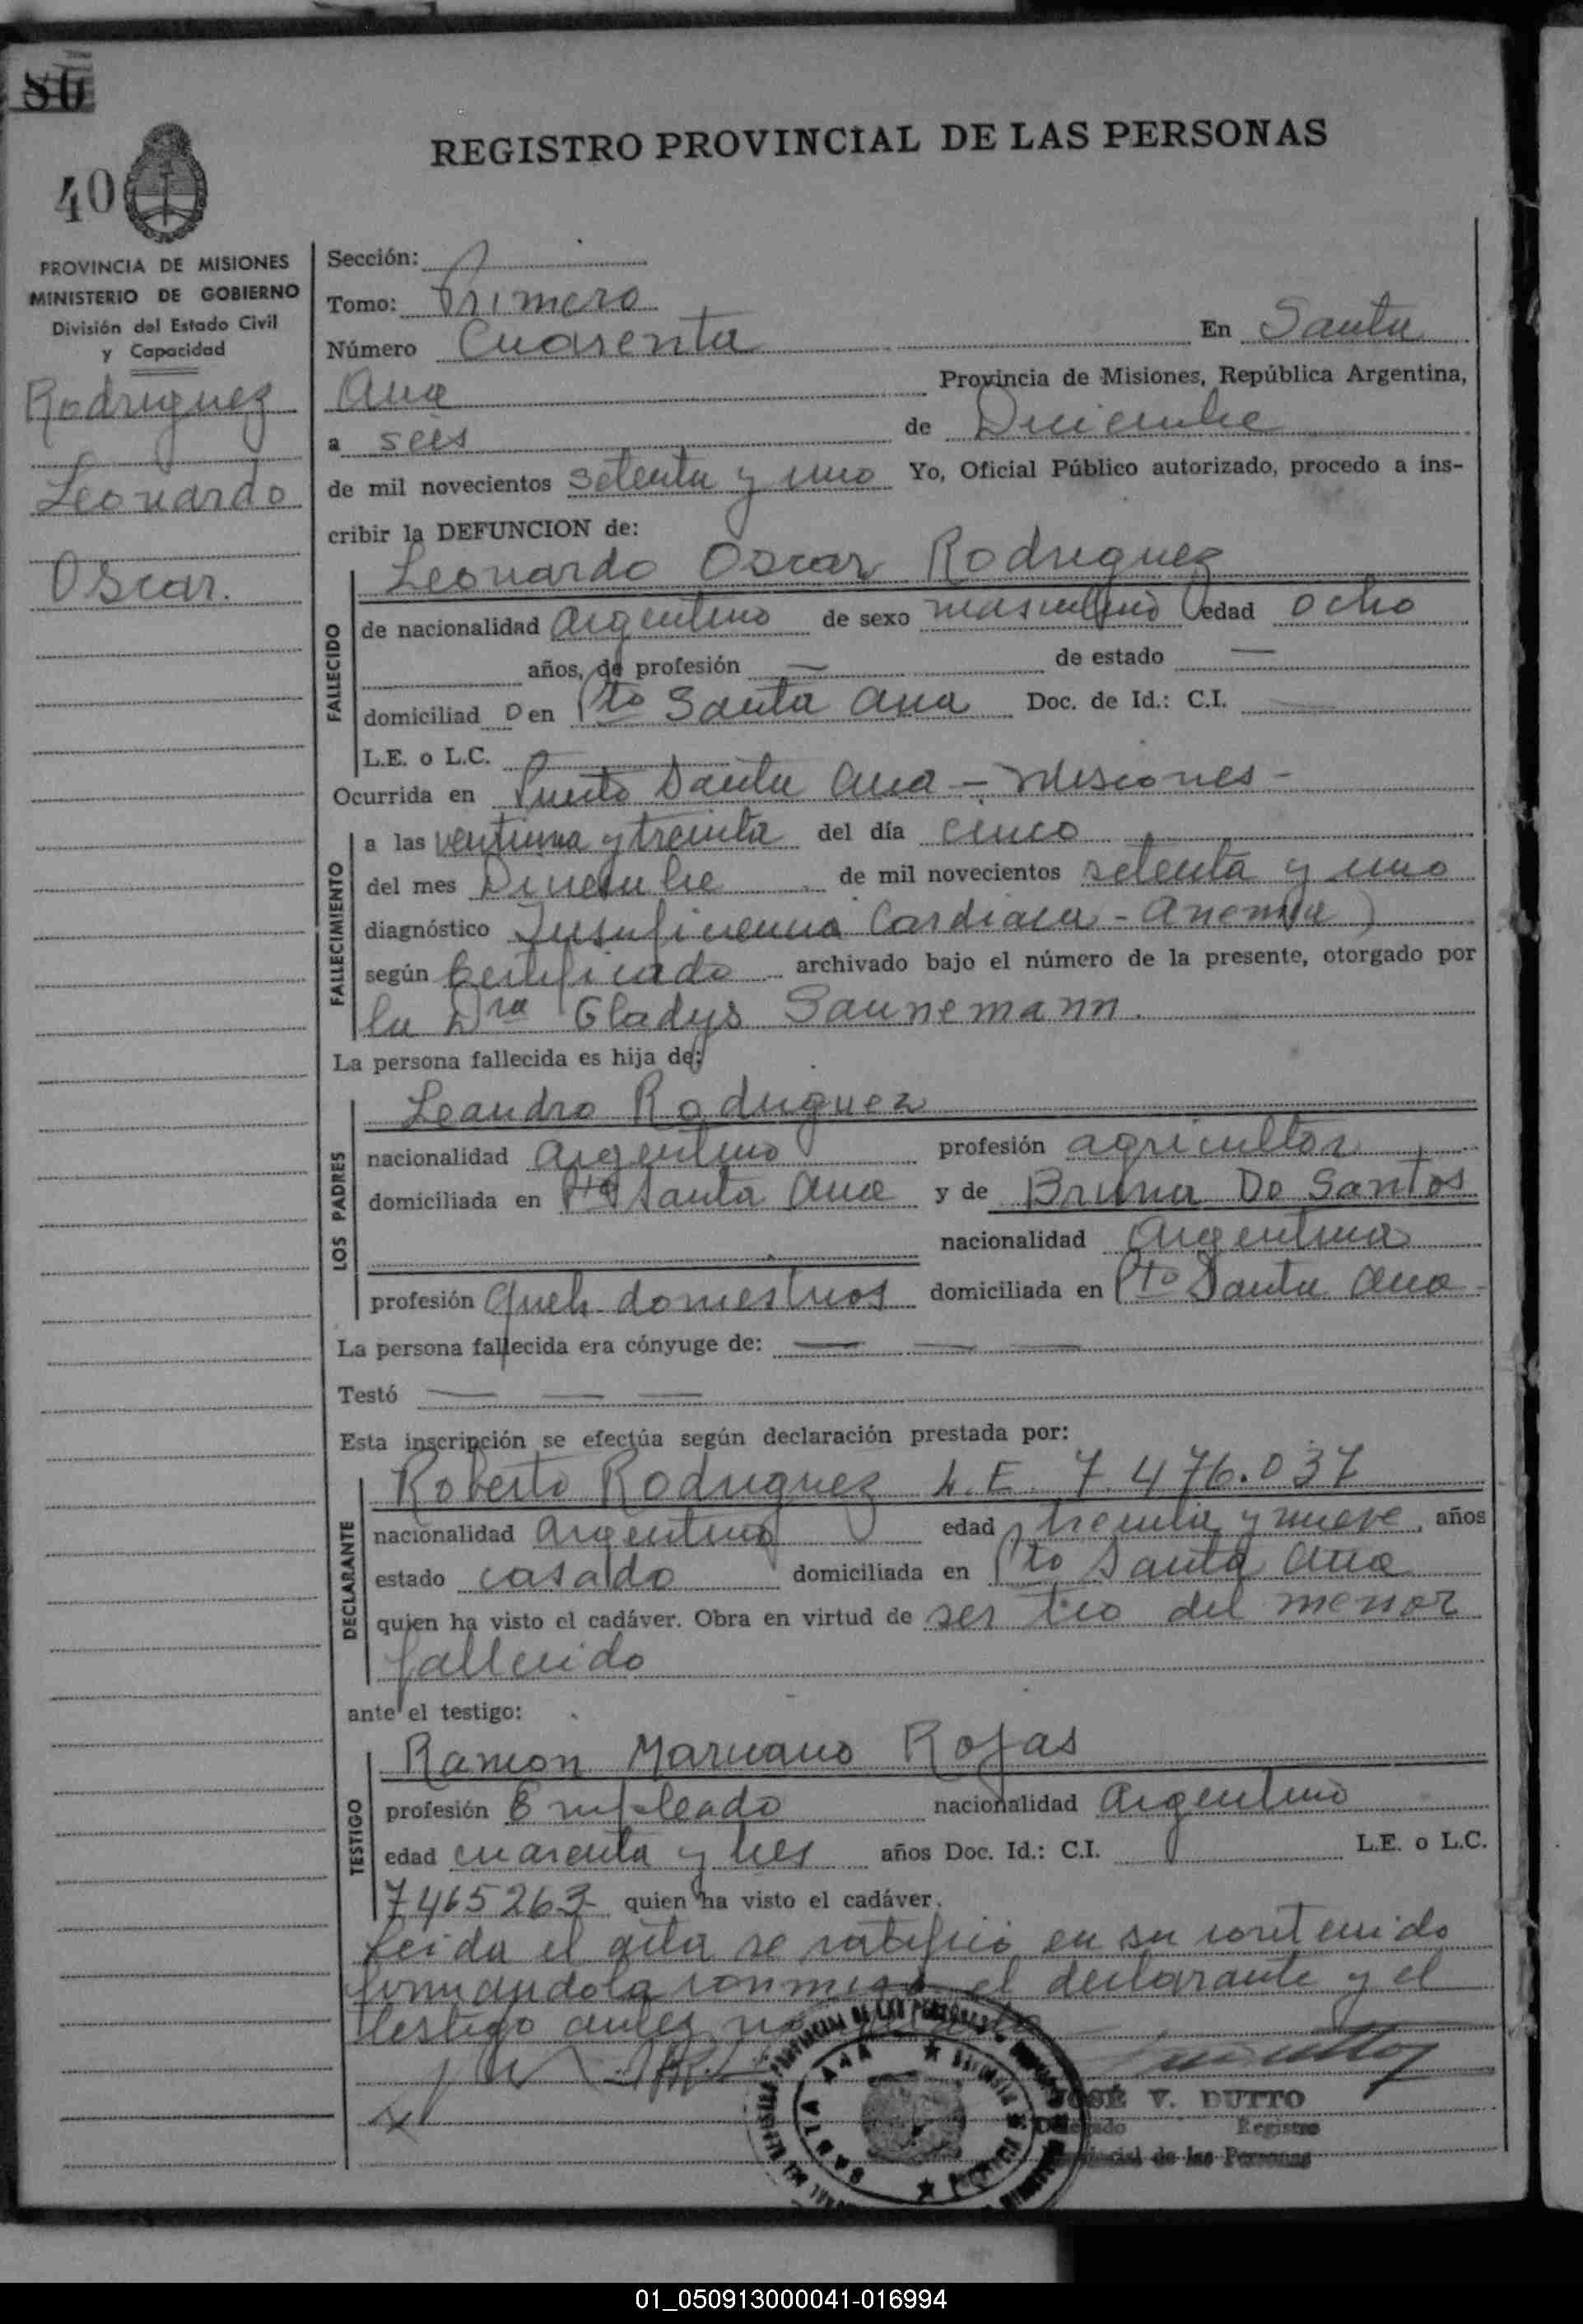 80
40
REGISTRO PROVINCIAL DE LAS PERSONAS
PROVINCIA DE MISIONES
MINISTERIO DE GOBIERNO
División del Estado Civil
y Capacidad
Rodriguez
Leonardo
Oscar.
Sección:
Tomo: Primero
Número Cuarenta En Santa
Ana Provincia de Misiones, República Argentina,
a seis de Diciembre
de mil novecientos setenta y uno Yo, Oficial Público autorizado, procedo a ins-
cribir la DEFUNCION de:
FALLECIDO
Leonardo Oscar Rodriguez
de nacionalidad Argentino de sexo masculino edad ocho
años, de profesión — de estado —
domiciliad o en Pto Santa Ana Doc. de Id.: C.I.
L.E. o L.C.
Ocurrida en Puerto Santa Ana - Misiones -
FALLECIMIENTO
a las ventiuna y treinta del día cinco
del mes Diciembre de mil novecientos setenta y uno
diagnóstico Insuficiencia Cardiaca - Anemia
según Certificado archivado bajo el número de la presente, otorgado por
la Dra Gladys Saunemann.
La persona fallecida es hija de:
LOS PADRES
Leandro Rodriguez
nacionalidad Argentino profesión agricultor
domiciliada en Pto Santa Ana y de Bruna Do Santos
nacionalidad Argentina
profesión Queh. domesticos domiciliada en Pto Santa Ana
La persona fallecida era cónyuge de: — — —
Testó — — —
Esta inscripción se efectúa según declaración prestada por:
DECLARANTE
Roberto Rodriguez L.E. 7.476.037
nacionalidad Argentino edad treinta y nueve, años
estado casado domiciliada en Pto Santa Ana
quien ha visto el cadáver. Obra en virtud de ser tio del menor
fallecido
ante el testigo:
TESTIGO
Ramon Mariano Rojas
profesión Empleado nacionalidad Argentino
edad cuarenta y tres años Doc. Id.: C.I. L.E. o L.C.
7465263 quien ha visto el cadáver.
Leida el acta se ratificó en su contenido
firmandola conmigo el declarante y el
testigo antes
SANTA ANA
JOSÉ V. DUTTO
Delegado Registro
Provincial de las Personas
01_050913000041-016994